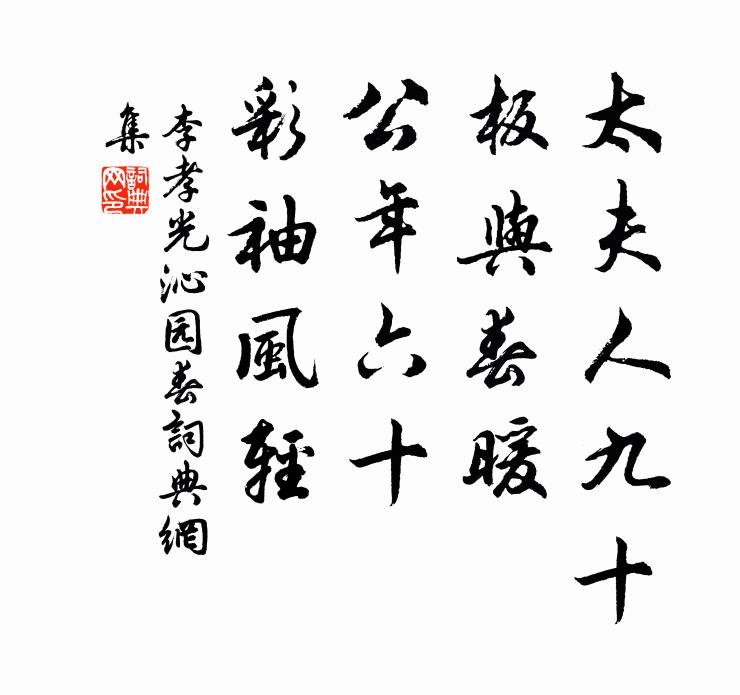 太夫人九十
板輿春暖
公年六十
彩袖風輕
李孝光沁园春詞典網
集
詞典网印